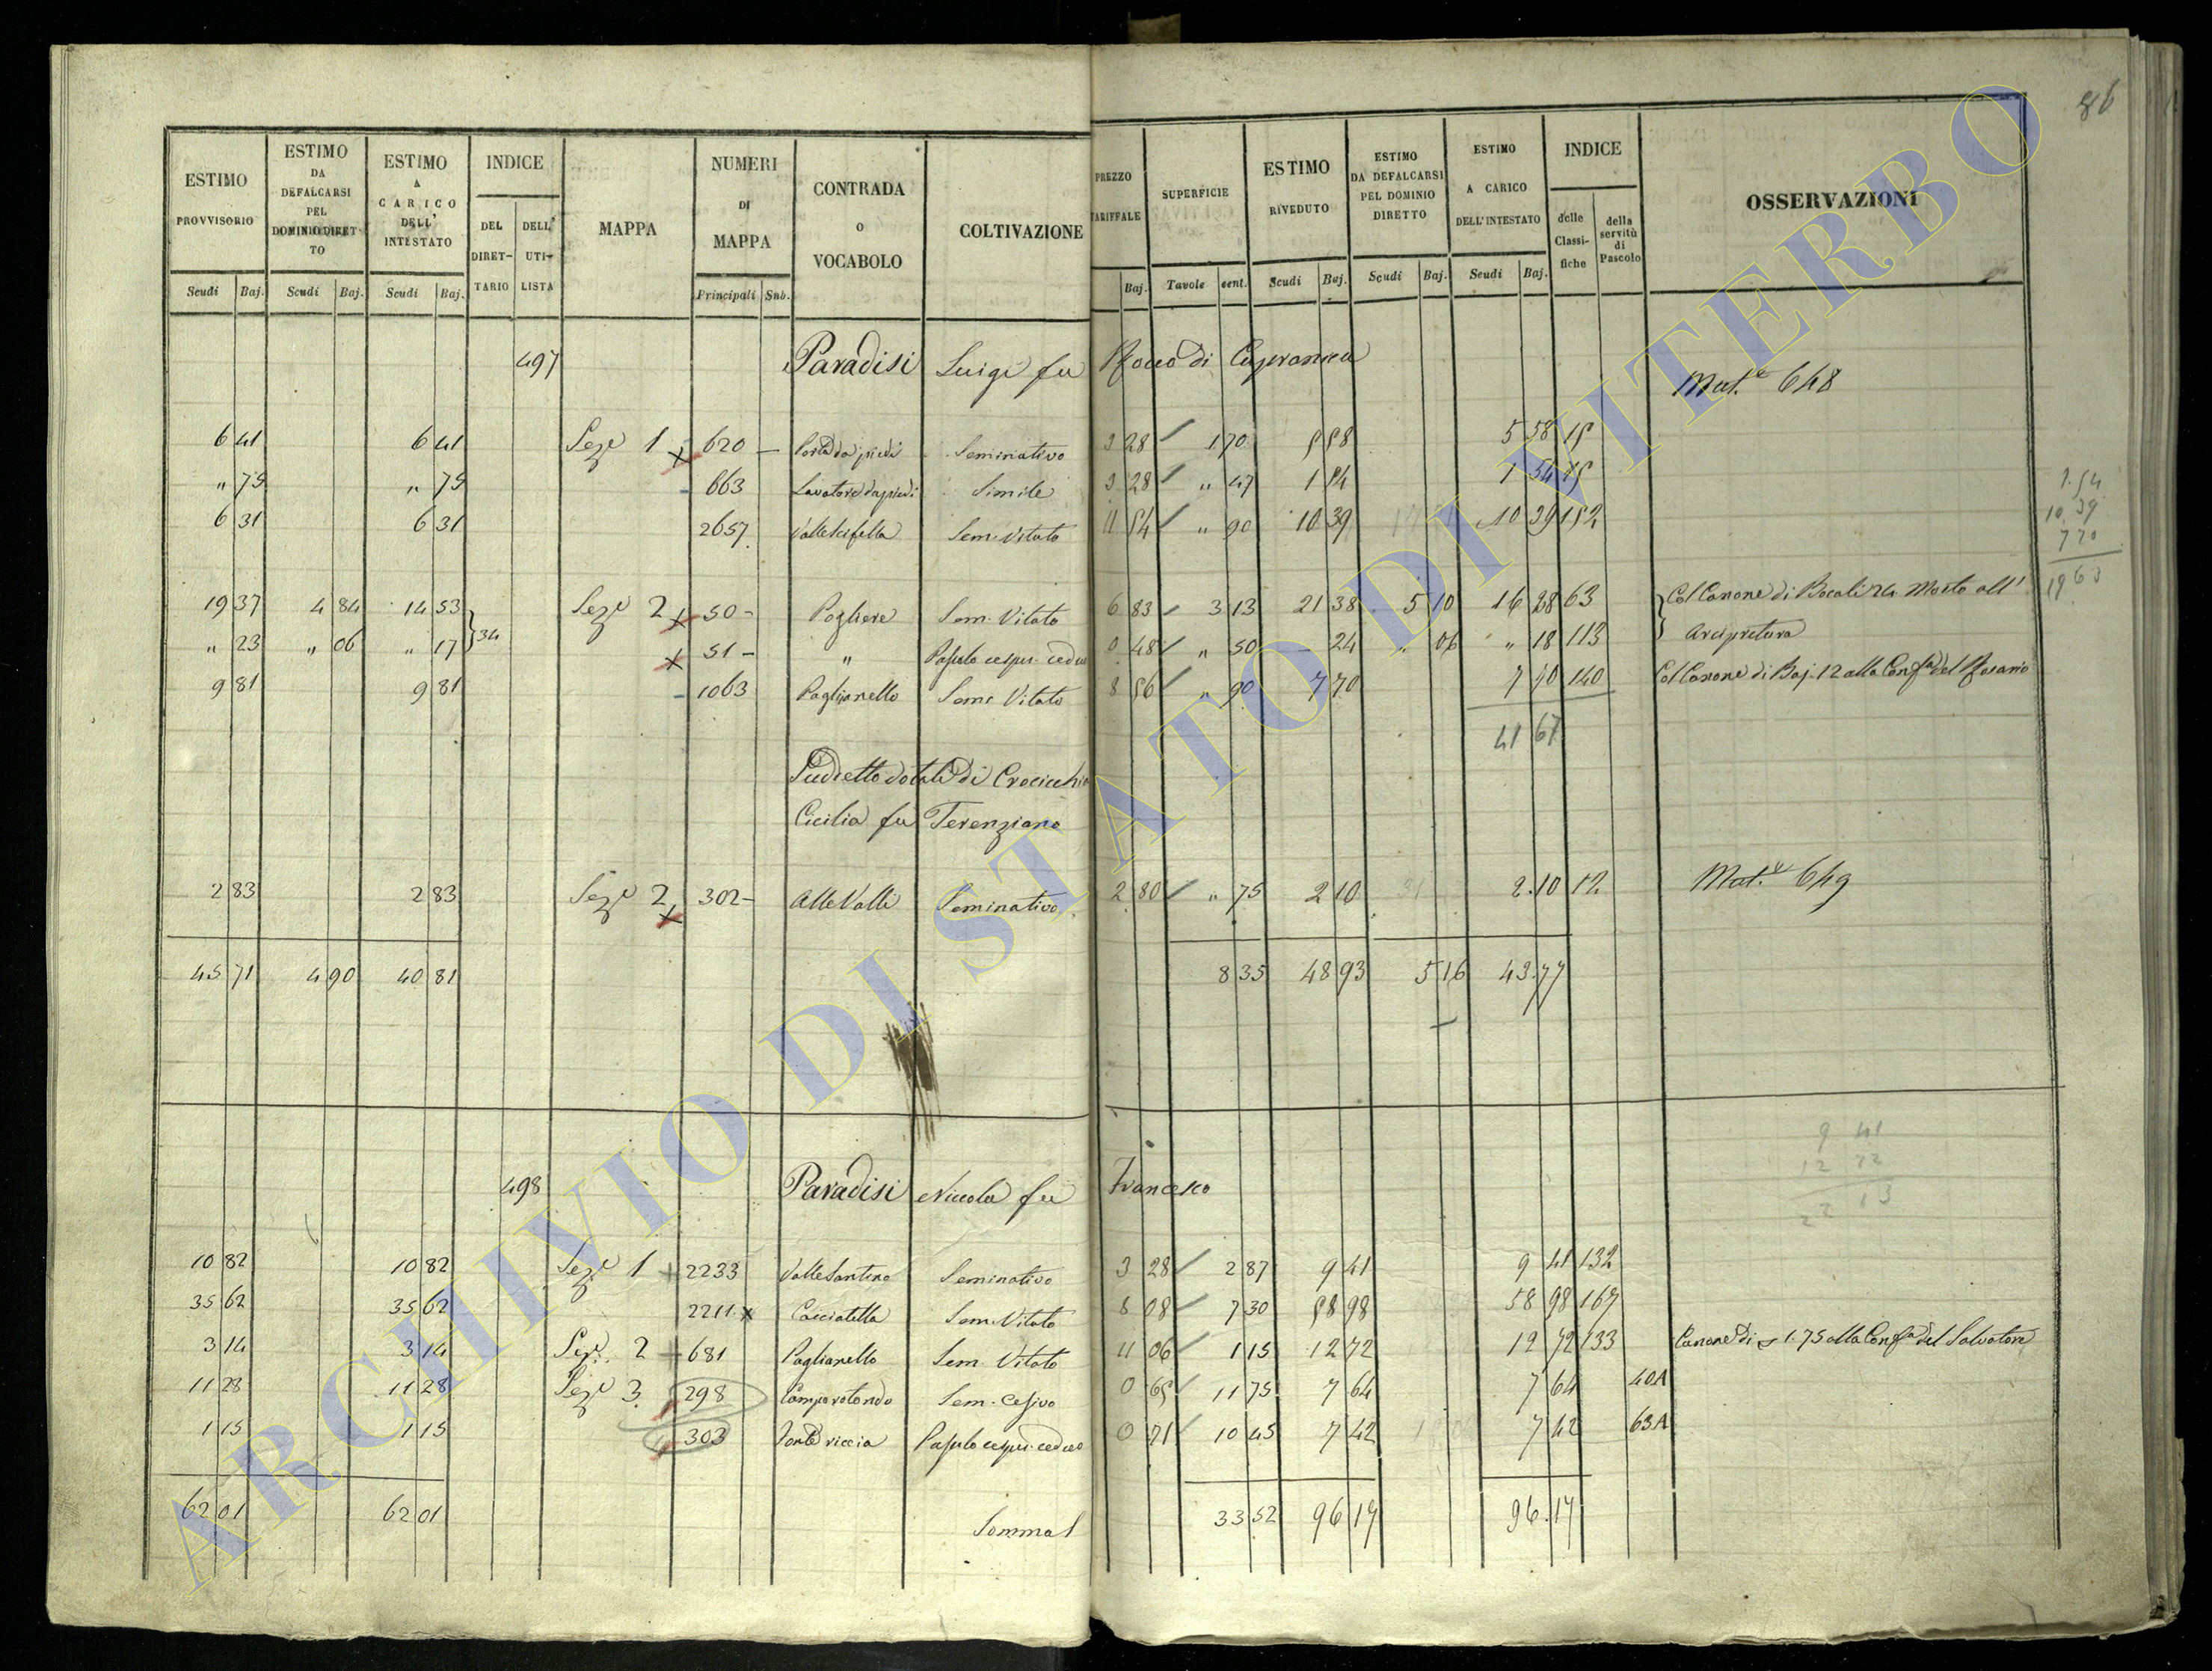 86
ESTIMO PROVVISORIO | ESTIMO DA DEFALCARSI PEL DOMINIO DIRETTO | ESTIMO A CARICO DELL' INTESTATO | INDICE DEL DIRETTARIO | DELL' UTILISTA | MAPPA | NUMERI DI MAPPA | CONTRADA o VOCABOLO | COLTIVAZIONE | PREZZO TARIFFALE | SUPERFICIE | ESTIMO RIVEDUTO | ESTIMO DA DEFALCARSI PEL DOMINIO DIRETTO | ESTIMO A CARICO DELL' INTESTATO | INDICE delle Classifiche | della servitù di Pascolo | OSSERVAZIONI
Scudi | Baj. | Scudi | Baj. | Scudi | Baj. | Principali | Sub. | Baj. | Tavole | cent. | Scudi | Baj. | Scudi | Baj. | Scudi | Baj.
497 Paradisi Luigi fu Rocco di Capranica
Mat.e 648
6 41 | 6 41 | Seze 1 | 620 | Porta da piedi | Seminativo | 3 28 | 1 70 | 5 58 | 5 58 | 15
" 75 | " 75 | 663 | Lavatore da piedi | Simile | 3 28 | " 47 | 1 54 | 1 54 | 15
6 31 | 6 31 | 2657 | Sem. Vitato | 11 54 | " 90 | 10 39 | 10 39 | 152
1.54
10.39
7 70
19 63
19 37 | 4 84 | 14 53 | 34 | Seze 2 | 50 | Pogliere | Sem. Vitato | 6 83 | 3 13 | 21 38 | 5 10 | 16 28 | 63 | Col Canone di Bocali 24 Mosto all'
" 23 | " 06 | " 17 | 51 | " | Pascolo cespu. ceduo | 0 48 | " 50 | 24 | " 06 | " 18 | 113 | Arcipretura
9 81 | 9 81 | 1063 | Paglianello | Sem. Vitato | 8 56 | " 90 | 7 70 | 7 70 | 140 | Col Canone di Baj. 12 alla Conf.a del Rosario
41 67
Sudietto dotale di Crocicchia
Cicilia fu Terenziano
2 83 | 2 83 | Seze 2 | 302 | Alle Valli | Seminativo | 2 80 | " 75 | 2 10 | 2.10 | 12 | Mat.e 649
45 71 | 4 90 | 40 81 | 8 35 | 48 93 | 5 16 | 43.77
9 41
12 72
22 13
498 Paradisi Niccola fu Francesco
10 82 | 10 82 | Seze 1 | 2233 | Valle Santino | Seminativo | 3 28 | 2 87 | 9 41 | 9 41 | 132
35 62 | 35 62 | 2211 | Cacciatella | Sem. Vitato | 8 08 | 7 30 | 58 98 | 58 98 | 167
3 14 | 3 14 | Seze 2 | 681 | Paglianello | Sem. Vitato | 11 06 | 1 15 | 12 72 | 12 72 | 133 | Canone di 1.75 alla Conf.a del Salvatore
11 28 | 11 28 | Seze 3 | 298 | Camporotondo | Sem. Cesivo | 0 65 | 11 75 | 7 64 | 7 64 | 40A
1 15 | 1 15 | 303 | Fonte riccia | Pascolo cespu. ceduo | 0 71 | 10 45 | 7 42 | 7 42 | 63A
62 01 | 62 01 | Somma | 33 52 | 96 17 | 96.17
ARCHIVIO DI STATO DI VITERBO